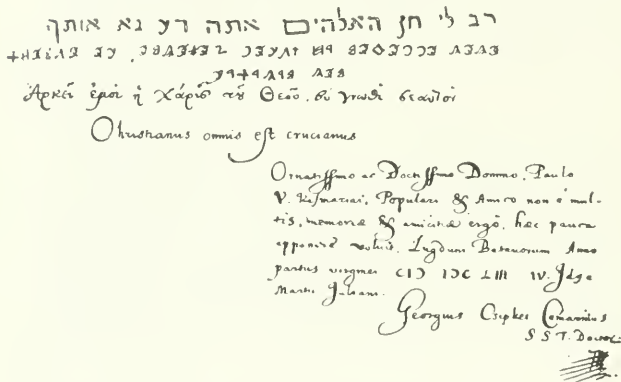 רב לי חן האלהים אתה דע נא אותך
Αρκεῖ ἐμοὶ ἡ Χάρις τοῦ Θεοῦ. συ γνωθι σεαυτον
Christianus omnis est crucianus
Ornatissimo ac Doctissimo Domino, Paulo
V. Kismariai, Populari & Amico non è mul-
tis, memoriæ & amicitiæ ergò, hæc pauca
apponere voluit. Lugduni Batavorum Anno
partus virginei CIƆ IƆC LIII IV. Idus
Martii Julian.
Georgius Csipkes Comarinus
S S T. Doctor.